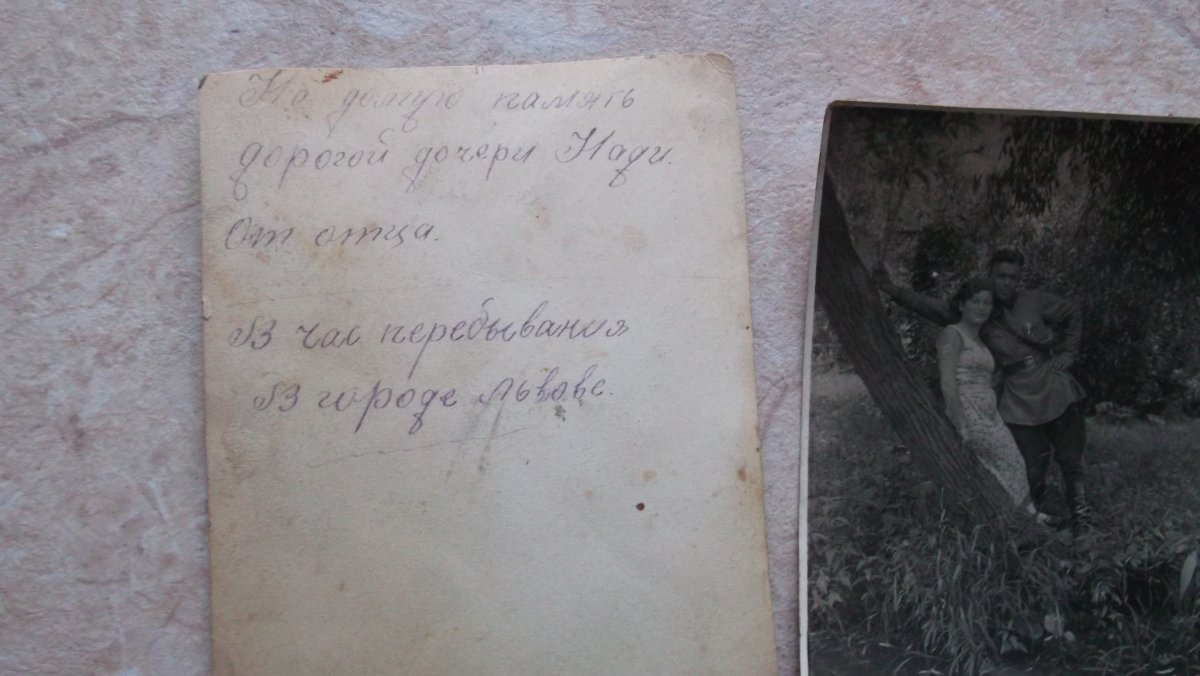 На долгую память
дорогой дочери Нади.
От отца.
В час перебывания
В городе Львове.